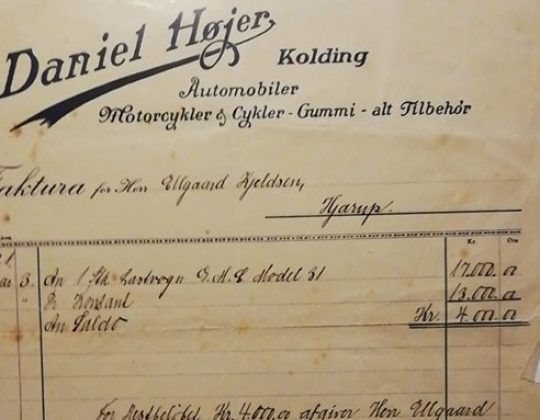 Daniel Højer,
Kolding
Automobiler
Motorcykler & Cykler - Gummi - alt Tilbehör
Faktura for Herr Ullgaard Kjeldsen,
Hjarup.
Kr. Øre
3. An 1 Stk Lastvogn G.M.C Model 31 17.000.00
" Pr Kontant 13.000.00
An Saldo Kr. 4.000.00
For Restbeløbet Kr. 4.000.00 afgiver Herr Ullgaard